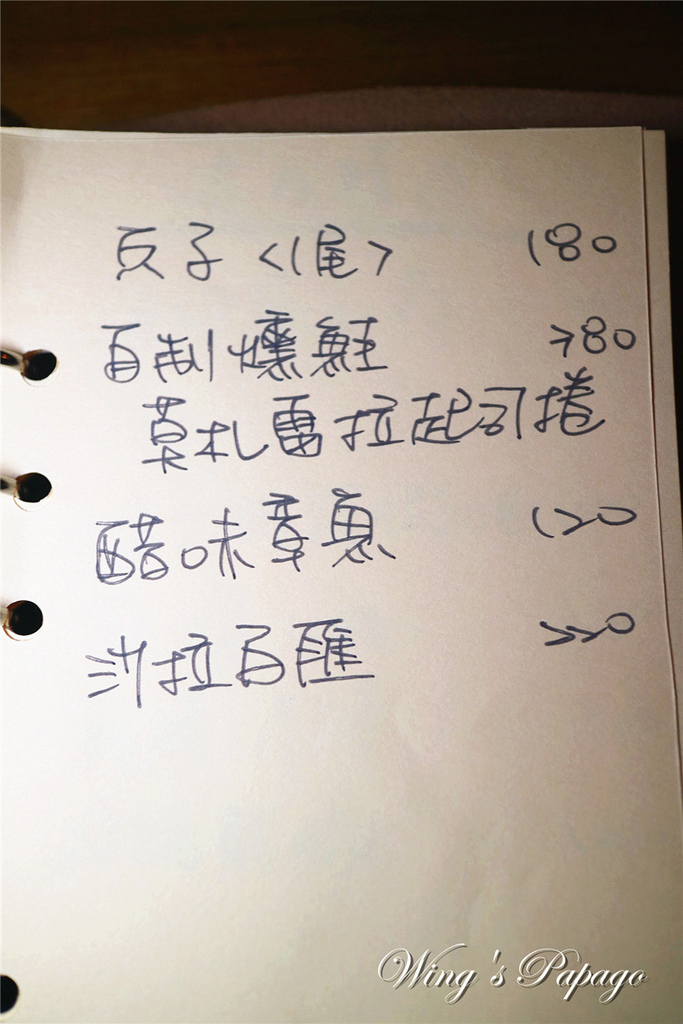 反子<1尾> 180
自制燻鮭 280
莫札雷拉起司捲
醋味章魚 120
沙拉百匯 220
Wing's Papago